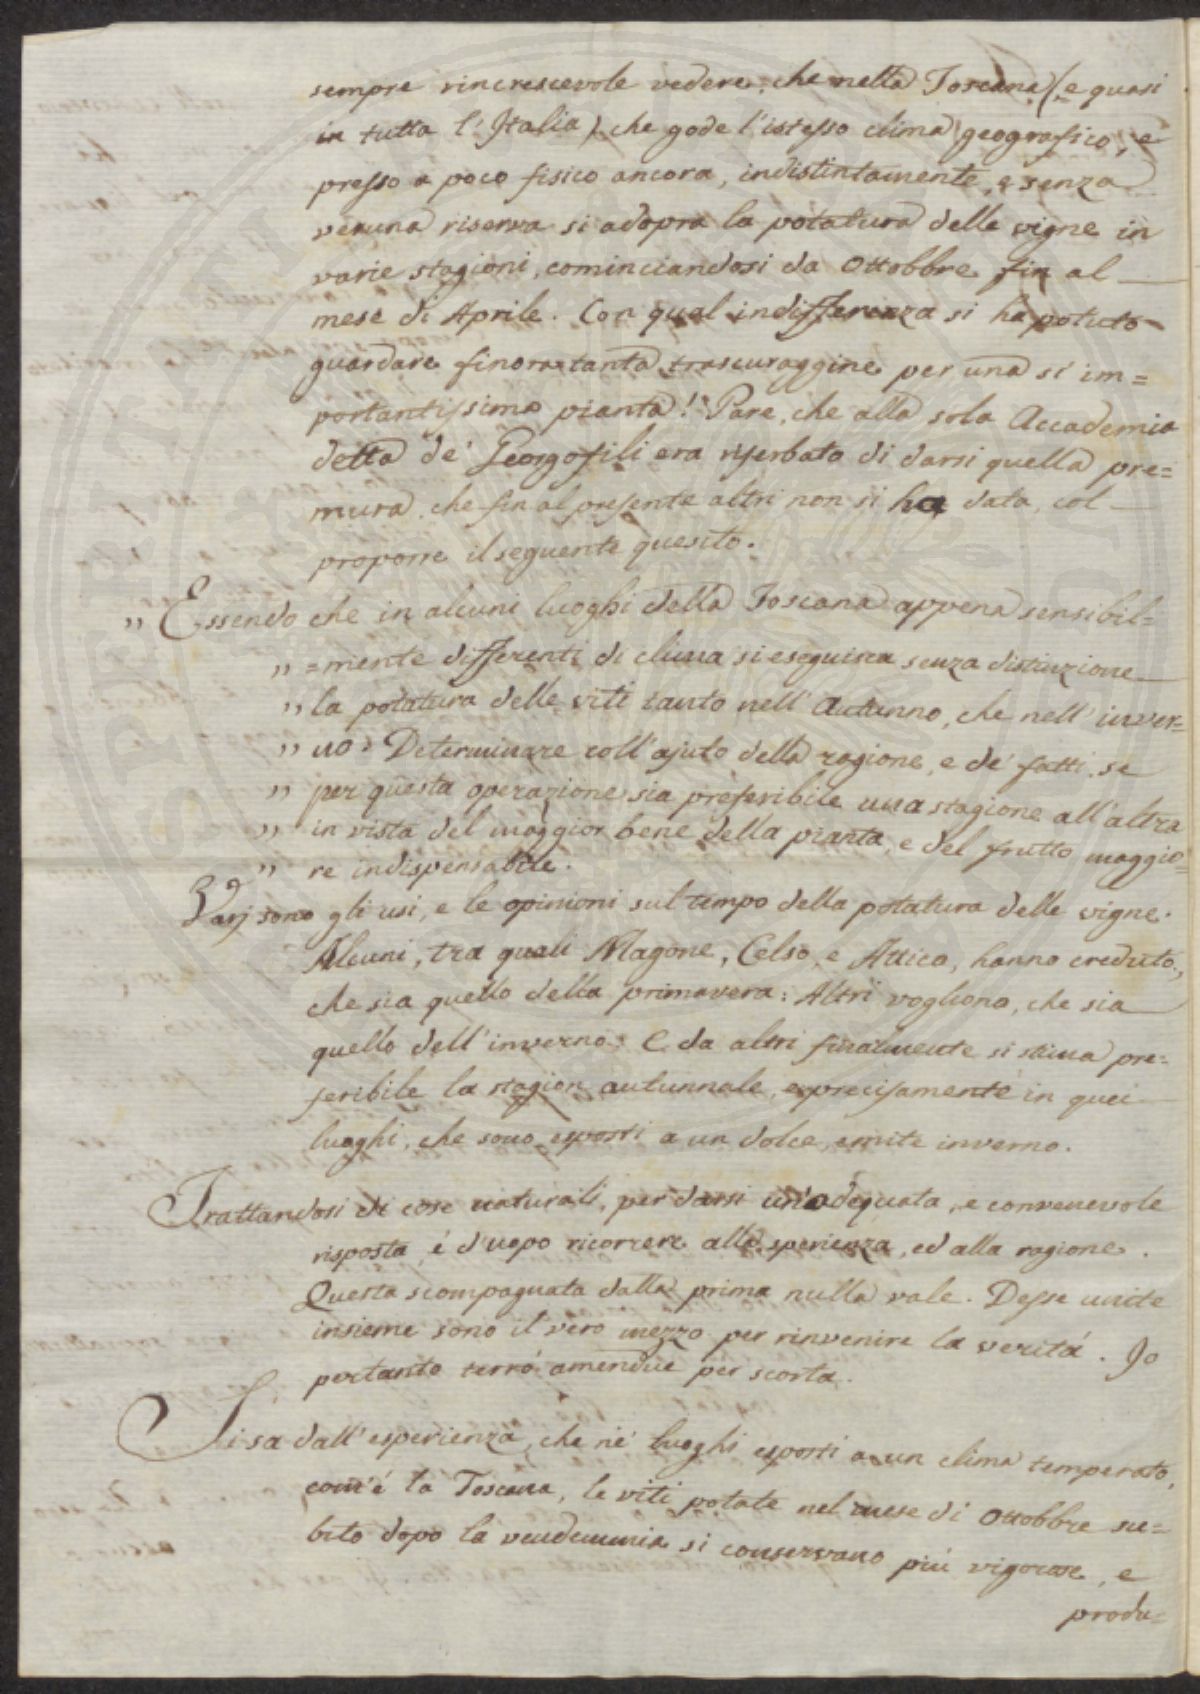 sempre rincrescevole vedere, che nella Toscana (e quasi
in tutta l'Italia) che gode l'istesso clima geografico, e
presso a poco fisico ancora, indistintamente, e senza
veruna riserva si adopra la potatura delle vigne in
varie stagioni, cominciandosi da Ottobbre fin al
mese di Aprile. Con qual indifferenza si ha potuto
guardare finora tanta trascuraggine per una sì im=
portantissima pianta! Pare, che alla sola Accademia
detta de' Georgofili era riserbato di darsi quella pre=
mura, che fin al presente altri non si ha data, col
proporre il seguente quesito.
„ Essendo che in alcuni luoghi della Toscana appena sensibil=
„ =mente differenti di clima si eseguisca senza distinzione
„ la potatura delle viti tanto nell'Autunno, che nell'inver=
„ no: Determinare coll'ajuto della ragione, e de' fatti, se
„ per questa operazione sia preferibile una stagione all'altra
„ in vista del maggior bene della pianta, e del frutto maggio=
„ re indispensabile.
Varj sono gli usi, e le opinioni sul tempo della potatura delle vigne.
Alcuni, tra quali Magone, Celso, e Attico, hanno creduto,
che sia quello della primavera: Altri vogliono, che sia
quello dell'inverno: E da altri finalmente si stima pre=
feribile la stagion autunnale, e precisamente in quei
luoghi, che sono esposti a un dolce, e mite inverno.
Trattandosi di cose naturali, per darsi un'adequata, e convenevole
risposta, é d'uopo ricorrere alla sperienza, ed alla ragione.
Questa scompagnata dalla prima nulla vale. Desse unite
insieme sono il vero mezzo per rinvenire la veritá. Io
pertanto terró amendue per scorta.
Si sa dall'esperienza, che ne' luoghi esposti a un clima temperato,
com'é la Toscana, le viti potate nel mese di Ottobbre su=
bito dopo la vendemmia si conservano piú vigorose, e
produ=